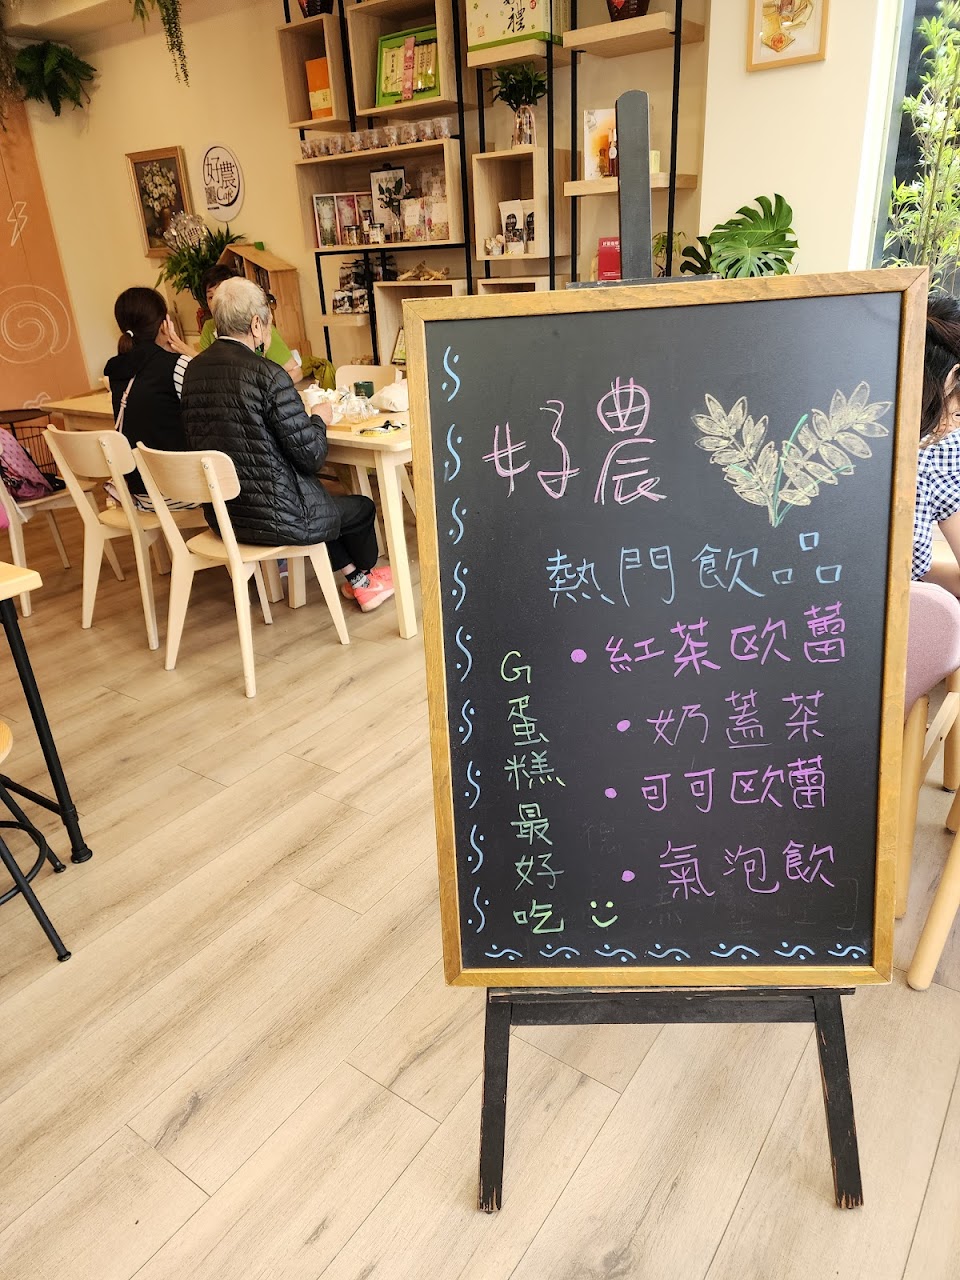 好農
熱門飲品
・紅茶欧蕾
・奶蓋茶
・可可欧蕾
・氣泡飲
G蛋糕最好吃
好農
Café
禮